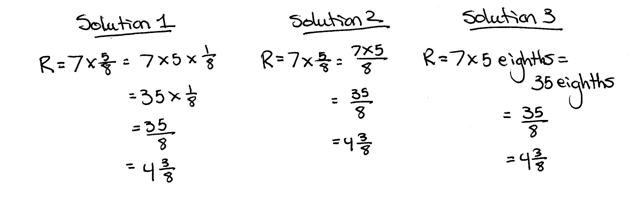 Solution 1
R = 7 × 5/8 = 7 × 5 × 1/8
= 35 × 1/8
= 35/8
= 4 3/8
Solution 2
R = 7 × 5/8 = 7×5/8
= 35/8
= 4 3/8
Solution 3
R = 7 × 5 eighths =
35 eighths
= 35/8
= 4 3/8